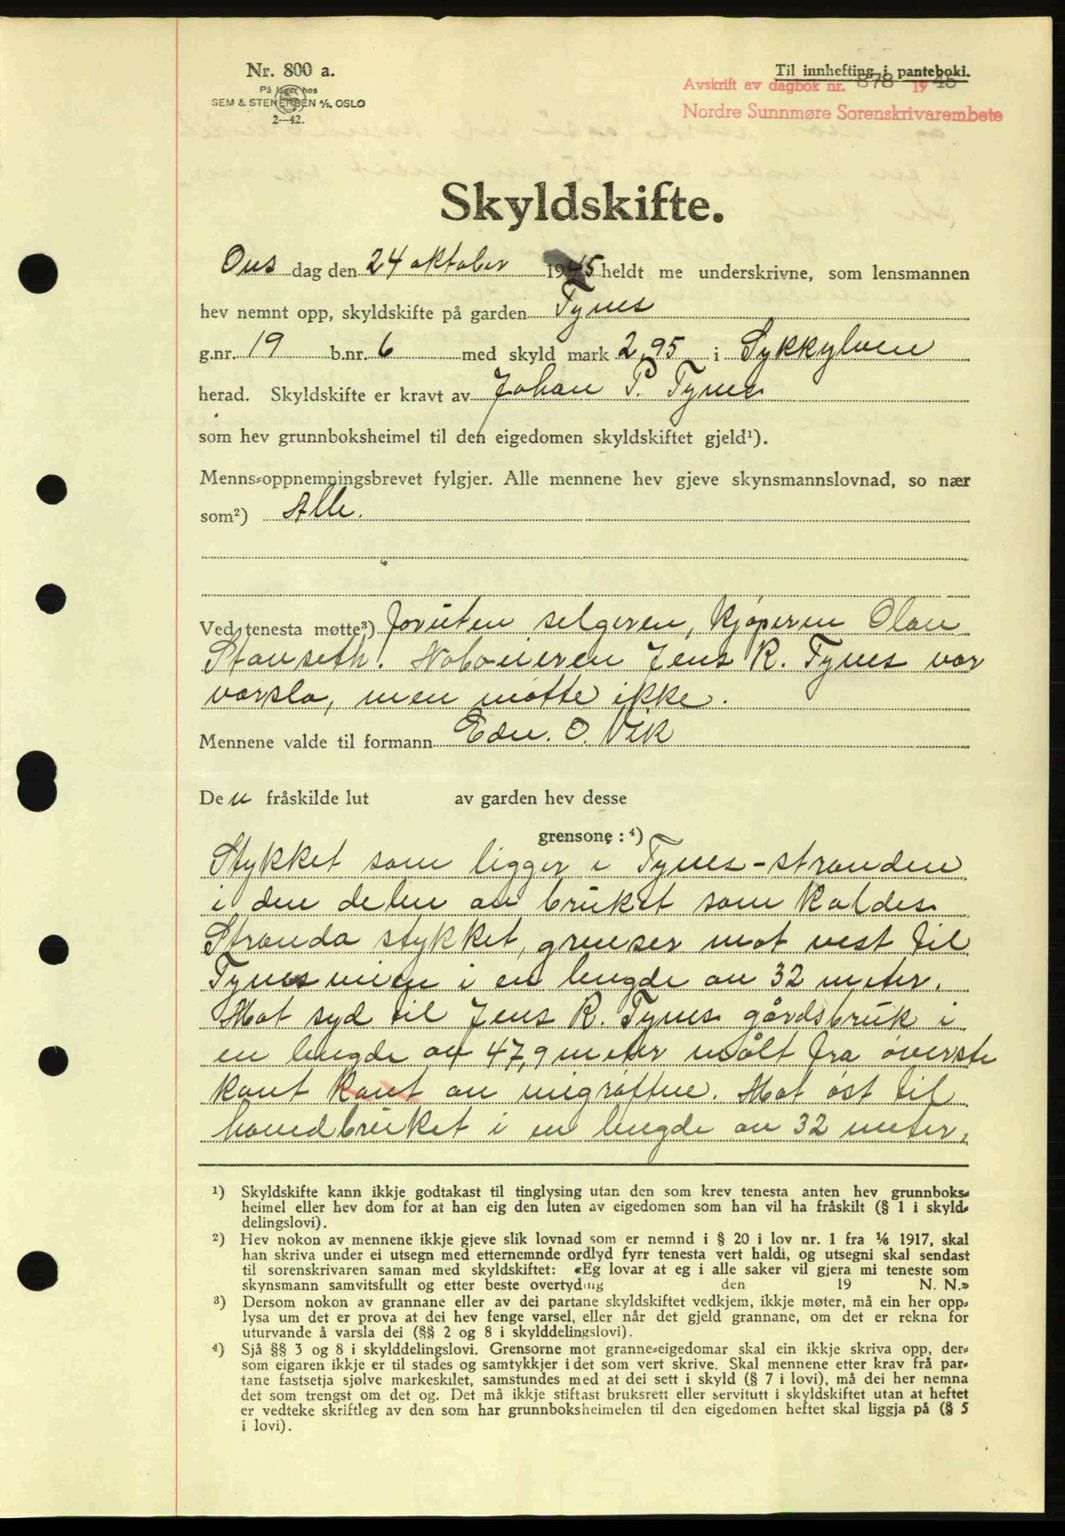 Nr. 800 a.
På lager hos
SEM & STENERSEN A/S, OSLO
2—42.
Til innhefting i panteboki.
Avskrift av dagbok nr. 878 1945
Nordre Sunnmøre Sorenskrivarembete
Skyldskifte.
Ons dag den 24 oktober 1945 heldt me underskrivne, som lensmannen
hev nemnt opp, skyldskifte på garden Tynes
g.nr. 19 b.nr. 6 med skyld mark 2,95 i Sykkylven
herad. Skyldskifte er kravt av Johan P. Tynes
som hev grunnboksheimel til den eigedomen skyldskiftet gjeld¹).
Menns-oppnemningsbrevet fylgjer. Alle mennene hev gjeve skynsmannslovnad, so nær
som²) Alle.
Ved tenesta møtte³) foruten selgeren, kjøperen Olav
Stavseth. Naboieren Jens R. Tynes var
varsla, men møtte ikke.
Mennene valde til formann Edv. O. Vik
De n fråskilde lut av garden hev desse
grensone: ⁴)
Stykket som ligger i Tynes-stranden
i den delen av bruket som kaldes
Stranda stykket, grenser mot vest til
Tynesveien i en lengde av 32 meter.
Mot syd til Jens R. Tynes gårdsbruk i
en lengde av 47,9 meter målt fra øverste
kant kant av veigrøften. Mot øst til
hovedbruket i en lengde av 32 meter.
¹) Skyldskifte kann ikkje godtakast til tinglysing utan den som krev tenesta anten hev grunnboks-
heimel eller hev dom for at han eig den luten av eigedomen som han vil ha fråskilt (§ 1 i skyld-
delingslovi).
²) Hev nokon av mennene ikkje gjeve slik lovnad som er nemnd i § 20 i lov nr. 1 fra 1/6 1917, skal
han skriva under ei utsegn med etternemnde ordlyd fyrr tenesta vert haldi, og utsegni skal sendast
til sorenskrivaren saman med skyldskiftet: «Eg lovar at eg i alle saker vil gjera mi teneste som
skynsmann samvitsfullt og etter beste overtyding den 19 N. N.»
³) Dersom nokon av grannane eller av dei partane skyldskiftet vedkjem, ikkje møter, må ein her opp-
lysa um det er prova at dei hev fenge varsel, eller når det gjeld grannane, om det er rekna for
uturvande å varsla dei (§§ 2 og 8 i skylddelingslovi).
⁴) Sjå §§ 3 og 8 i skylddelingslovi. Grensorne mot granne-eigedomar skal ein ikkje skriva opp, der-
som eigaren ikkje er til stades og samtykkjer i det som vert skrive. Skal mennene etter krav frå par-
tane fastsetja sjølve markeskilet, samstundes med at dei sett i skyld (§ 7 i lovi), må dei her nemna
det som trengst om det og. Det må ikkje stiftast bruksrett eller servitutt i skyldskiftet utan at heftet
er vedteke skriftleg av den som har grunnboksheimelen til den eigedomen heftet skal liggja på (§ 5
i lovi).